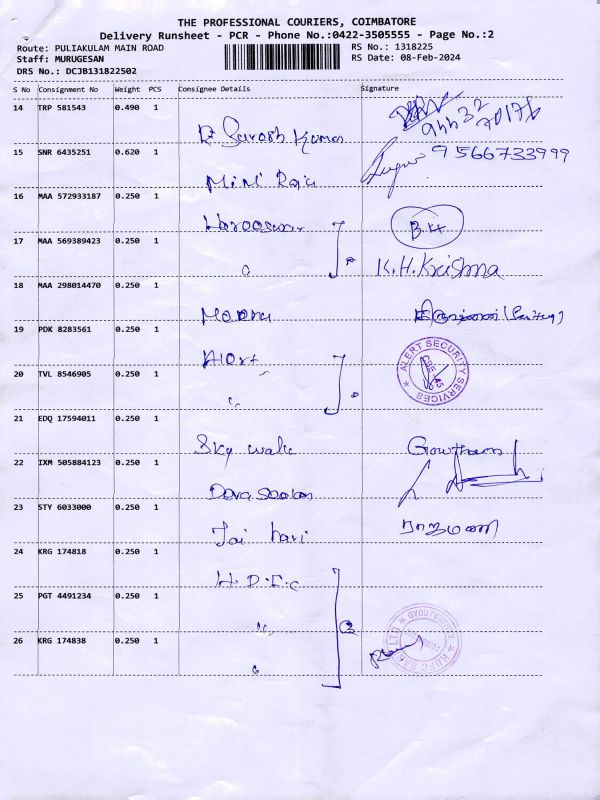 THE PROFESSIONAL COURIERS, COIMBATORE
Delivery Runsheet - PCR - Phone No.:0422-3505555 - Page No.:2
Route: PULIAKULAM MAIN ROAD
RS No.: 1318225
Staff: MURUGESAN
RS Date: 08-Feb-2024
DRS No.: DCJB131822502
S No Consignment No Weight PCS Consignee Details Signature
14 TRP 581543 0.490 1
15 SNR 6435251 0.620 1
9566733999
16 MAA 572933187 0.250 1
B.H
17 MAA 569389423 0.250 1
K.H.Krishna
18 MAA 298014470 0.250 1
19 PDK 8283561 0.250 1
Alert
ALERT SECURITY SERVICES
20 TVL 8546905 0.250 1
21 EDQ 17594011 0.250 1
Sky walk Gowtham
22 IXM 505884123 0.250 1
23 STY 6033000 0.250 1
Jai hari ராஜமணி
24 KRG 174818 0.250 1
H.D.F.C
25 PGT 4491234 0.250 1
3
26 KRG 174838 0.250 1